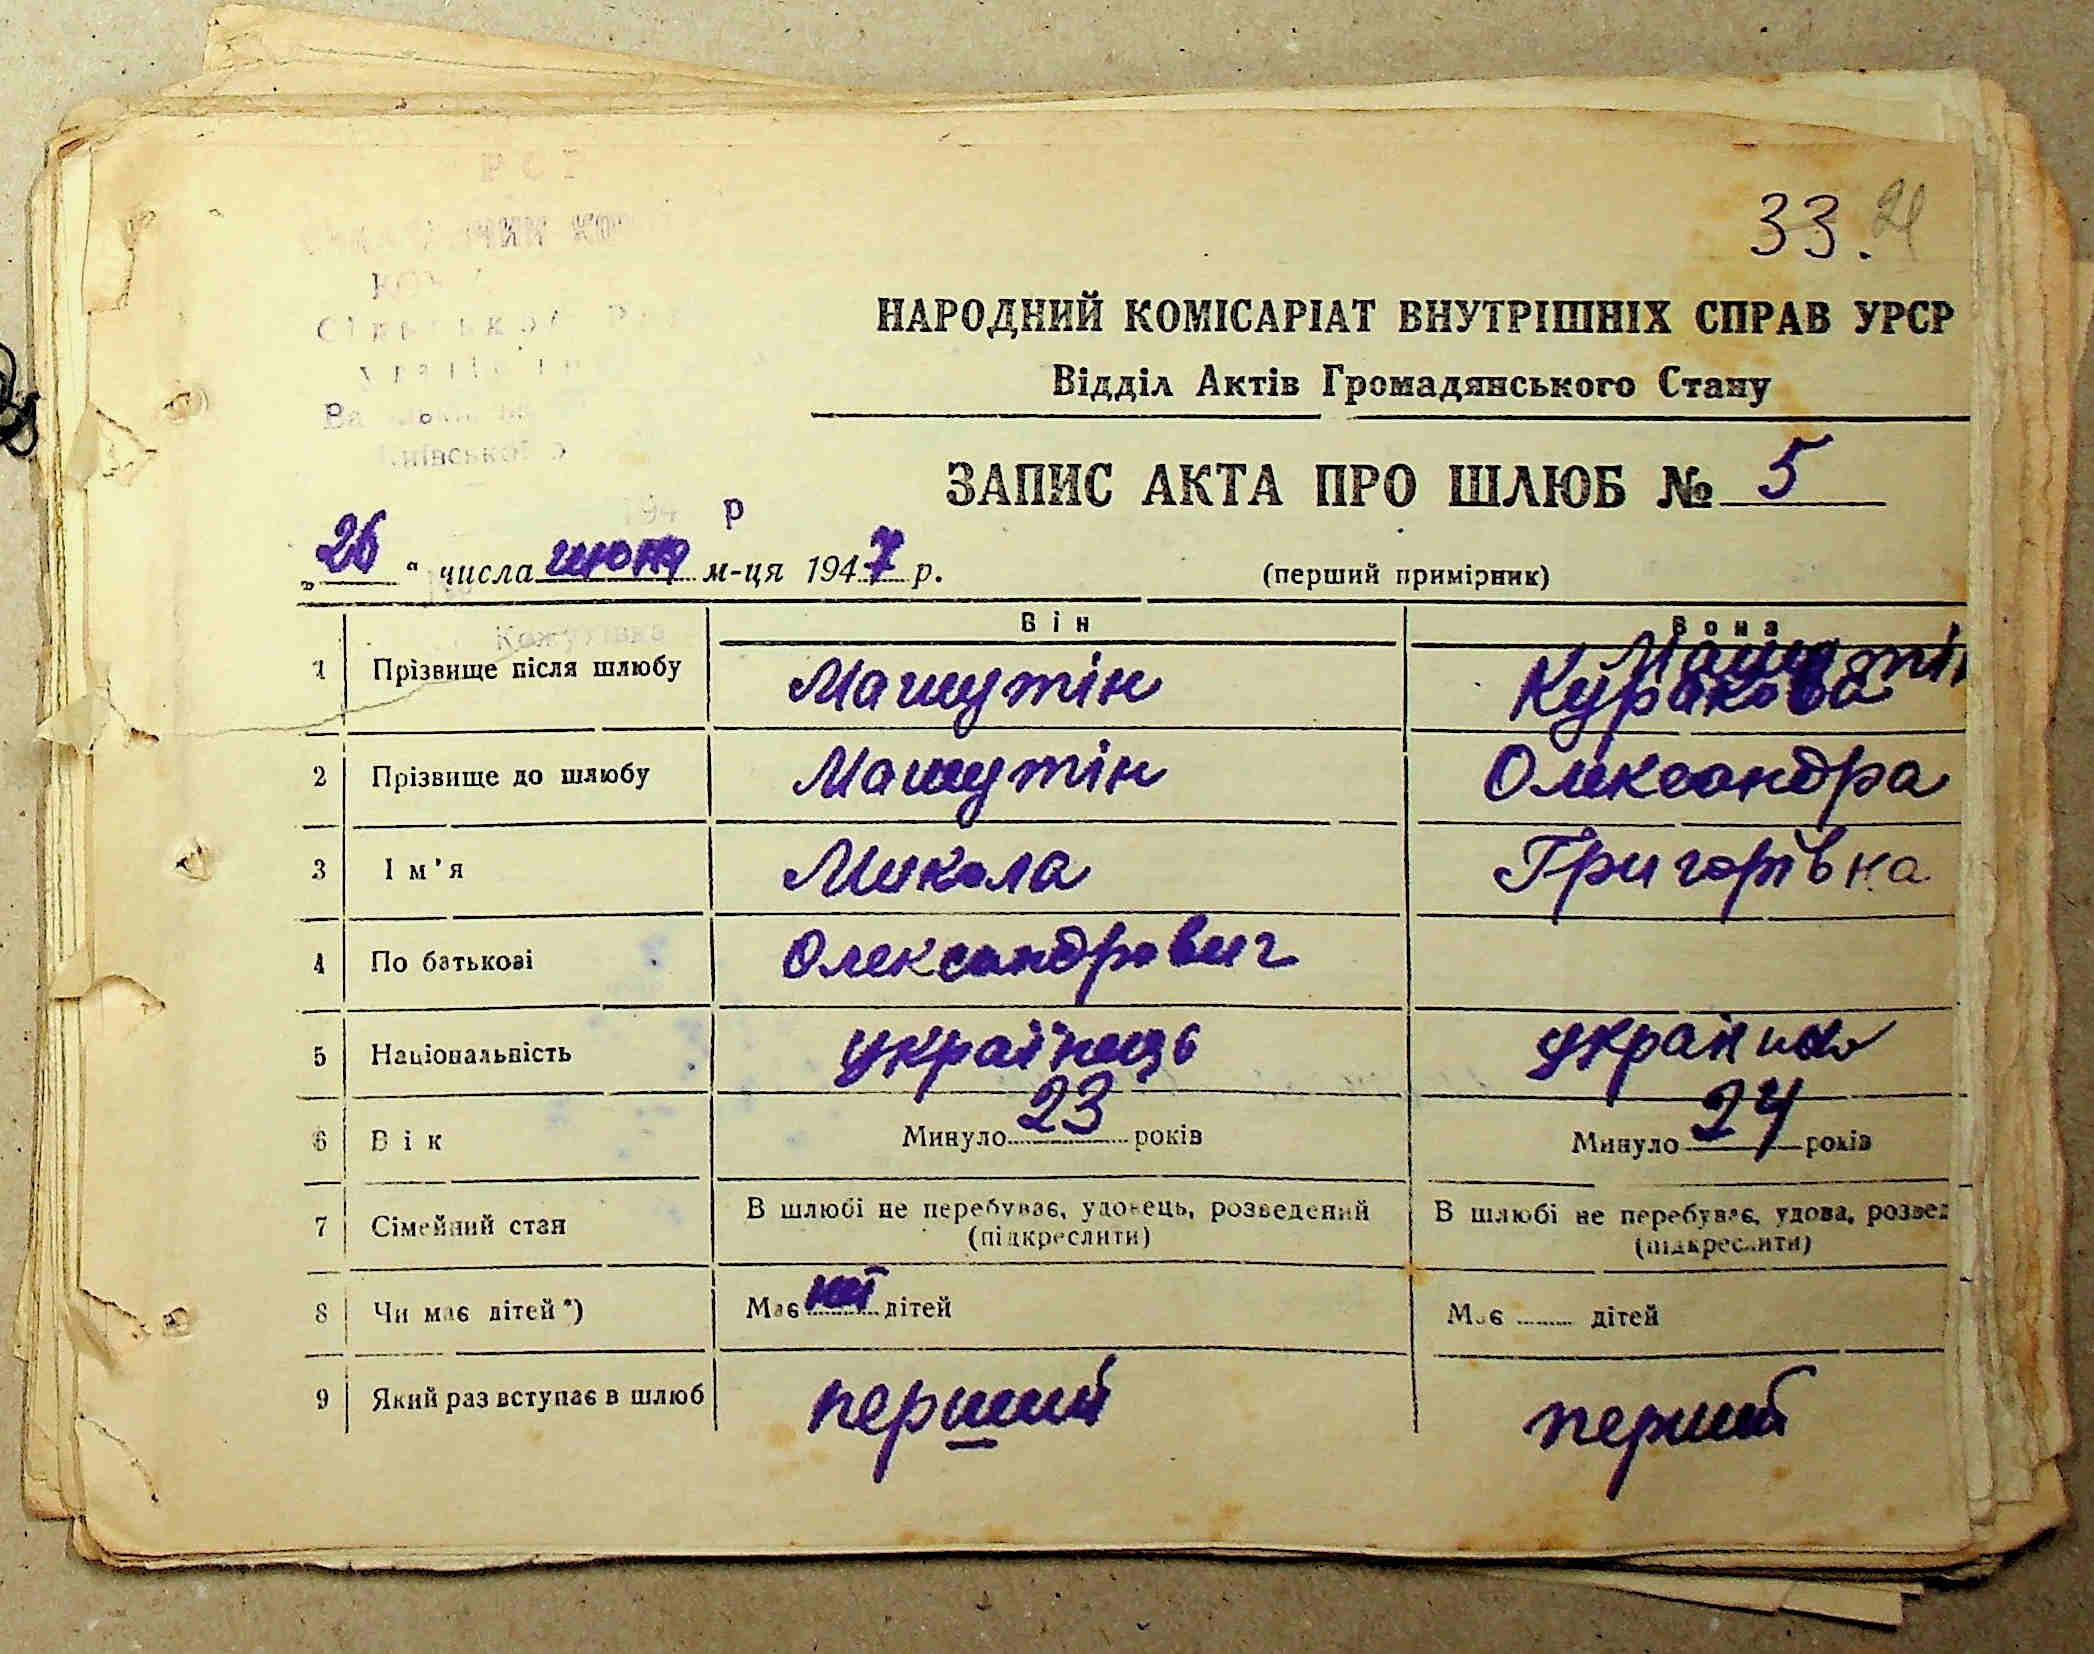 33. 21
НАРОДНИЙ КОМІСАРІАТ ВНУТРІШНІХ СПРАВ УРСР
Відділ Актів Громадянського Стану
ЗАПИС АКТА ПРО ШЛЮБ № 5
„26“ числа июня м-ця 1947 р.
(перший примірник)
Він Вона
1 Прізвище після шлюбу Машутін Машутін Куракова
2 Прізвище до шлюбу Машутін Олександра
3 Ім'я Микола Григорівна
4 По батькові Олександрович
5 Національність українець українка
6 Вік Минуло 23 років Минуло 24 років
7 Сімейний стан В шлюбі не перебуває, удовець, розведений В шлюбі не перебуває, удова, розвед
(підкреслити) (підкреслити)
8 Чи має дітей*) Має дітей Має дітей
9 Який раз вступає в шлюб перший перший